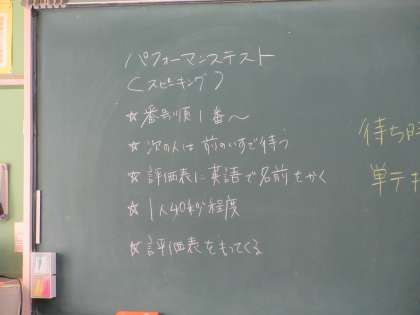 パフォーマンステスト
(スピーキング)
☆番号順1番〜
☆次の人は前のいすで待つ
☆評価表に英語で名前をかく
☆1人40秒程度
☆評価表をもってくる
待ち時
単テキ